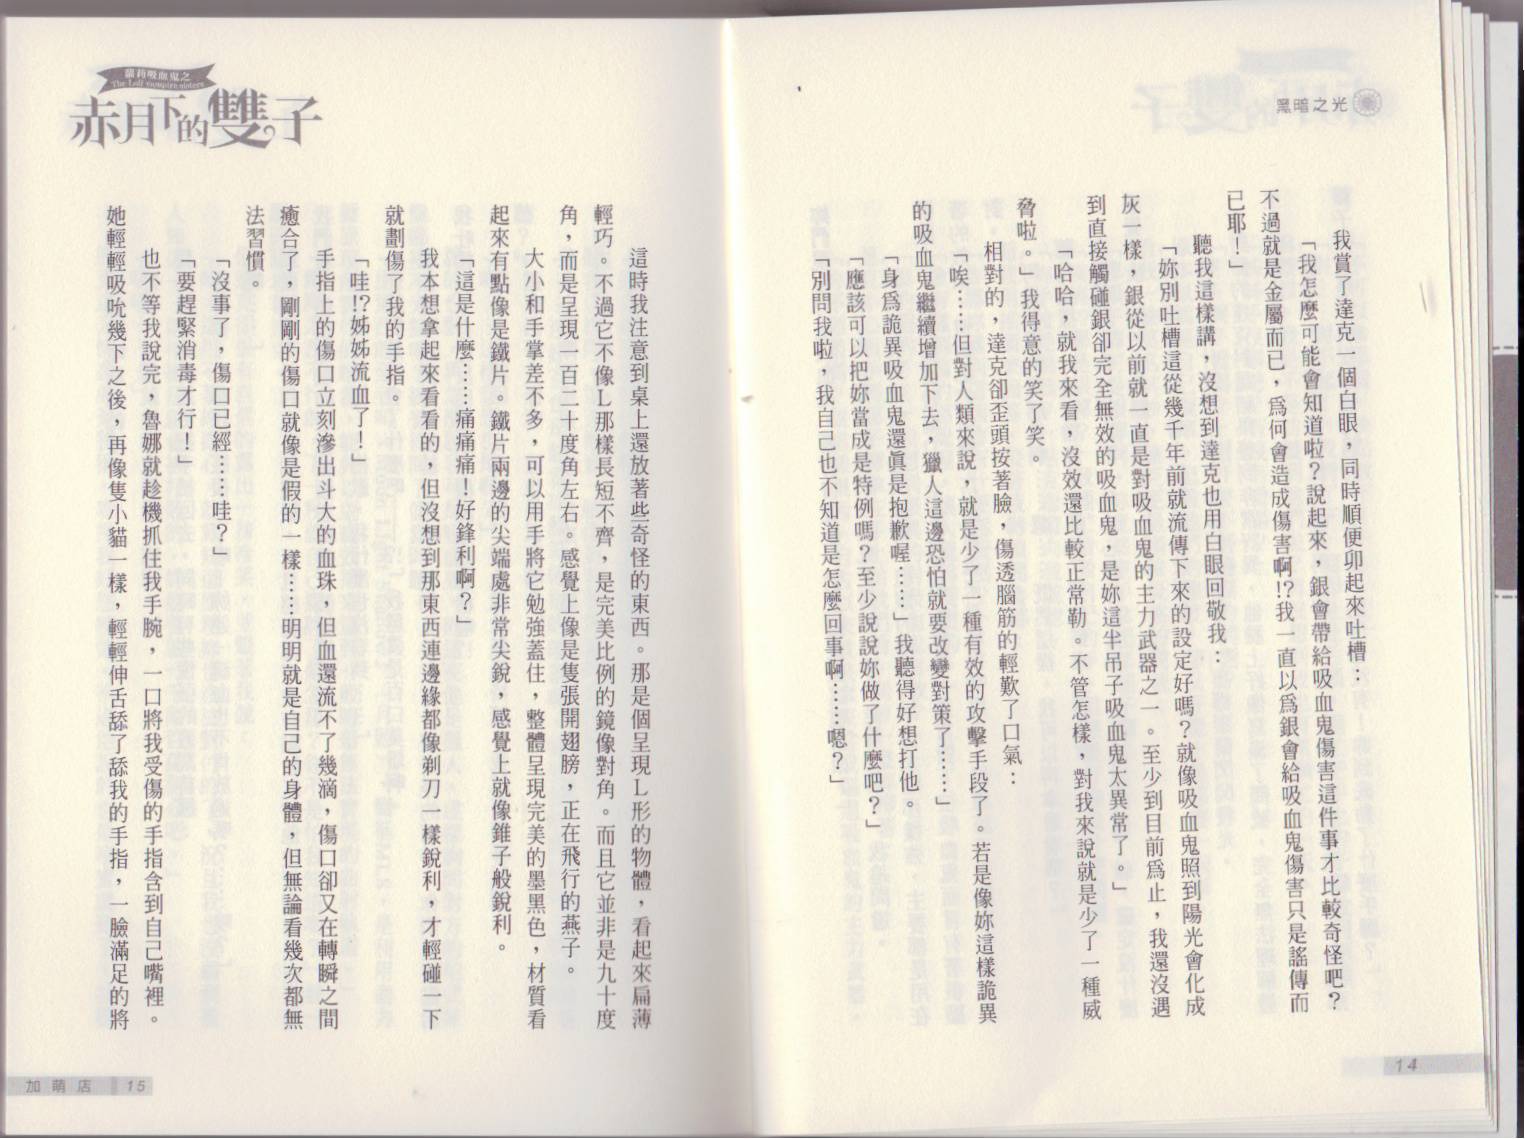 黑暗之光
我賞了達克一個白眼，同時順便卯起來吐槽：
「我怎麼可能會知道啦？說起來，銀會帶給吸血鬼傷害這件事才比較奇怪吧？
不過就是金屬而已，為何會造成傷害啊!?我一直以為銀會給吸血鬼傷害只是謠傳而
已耶！」
聽我這樣講，沒想到達克也用白眼回敬我：
「妳別吐槽這從幾千年前就流傳下來的設定好嗎？就像吸血鬼照到陽光會化成
灰一樣，銀從以前就一直是對吸血鬼的主力武器之一。至少到目前為止，我還沒遇
到直接觸碰銀卻完全無效的吸血鬼，是妳這半吊子吸血鬼太異常了。」
「哈哈，就我來看，沒效還比較正常勒。不管怎樣，對我來說就是少了一種威
脅啦。」我得意的笑了笑。
相對的，達克卻歪頭按著臉，傷透腦筋的輕歎了口氣：
「唉……但對人類來說，就是少了一種有效的攻擊手段了。若是像妳這樣詭異
的吸血鬼繼續增加下去，獵人這邊恐怕就要改變對策了……」
「身為詭異吸血鬼還真是抱歉喔……」我聽得好想打他。
「應該可以把妳當成是特例嗎？至少說說妳做了什麼吧？」
「別問我啦，我自己也不知道是怎麼回事啊……嗯？」
14
蘿莉吸血鬼之
The Loli vampire sisters
赤月下的雙子
這時我注意到桌上還放著些奇怪的東西。那是個呈現L形的物體，看起來扁薄
輕巧。不過它不像L那樣長短不齊，是完美比例的鏡像對角。而且它並非是九十度
角，而是呈現一百二十度角左右。感覺上像是隻張開翅膀，正在飛行的燕子。
大小和手掌差不多，可以用手將它勉強蓋住，整體呈現完美的墨黑色，材質看
起來有點像是鐵片。鐵片兩邊的尖端處非常尖銳，感覺上就像錐子般銳利。
「這是什麼……痛痛痛！好鋒利啊？」
我本想拿起來看看的，但沒想到那東西連邊緣都像剃刀一樣銳利，才輕碰一下
就劃傷了我的手指。
「哇!?姊姊流血了！」
手指上的傷口立刻滲出斗大的血珠，但血還流不了幾滴，傷口卻又在轉瞬之間
癒合了，剛剛的傷口就像是假的一樣……明明就是自己的身體，但無論看幾次都無
法習慣。
「沒事了，傷口已經……哇？」
「要趕緊消毒才行！」
也不等我說完，魯娜就趁機抓住我手腕，一口將我受傷的手指含到自己嘴裡。
她輕輕吸吮幾下之後，再像隻小貓一樣，輕輕伸舌舔了舔我的手指，一臉滿足的將
加萌店 15